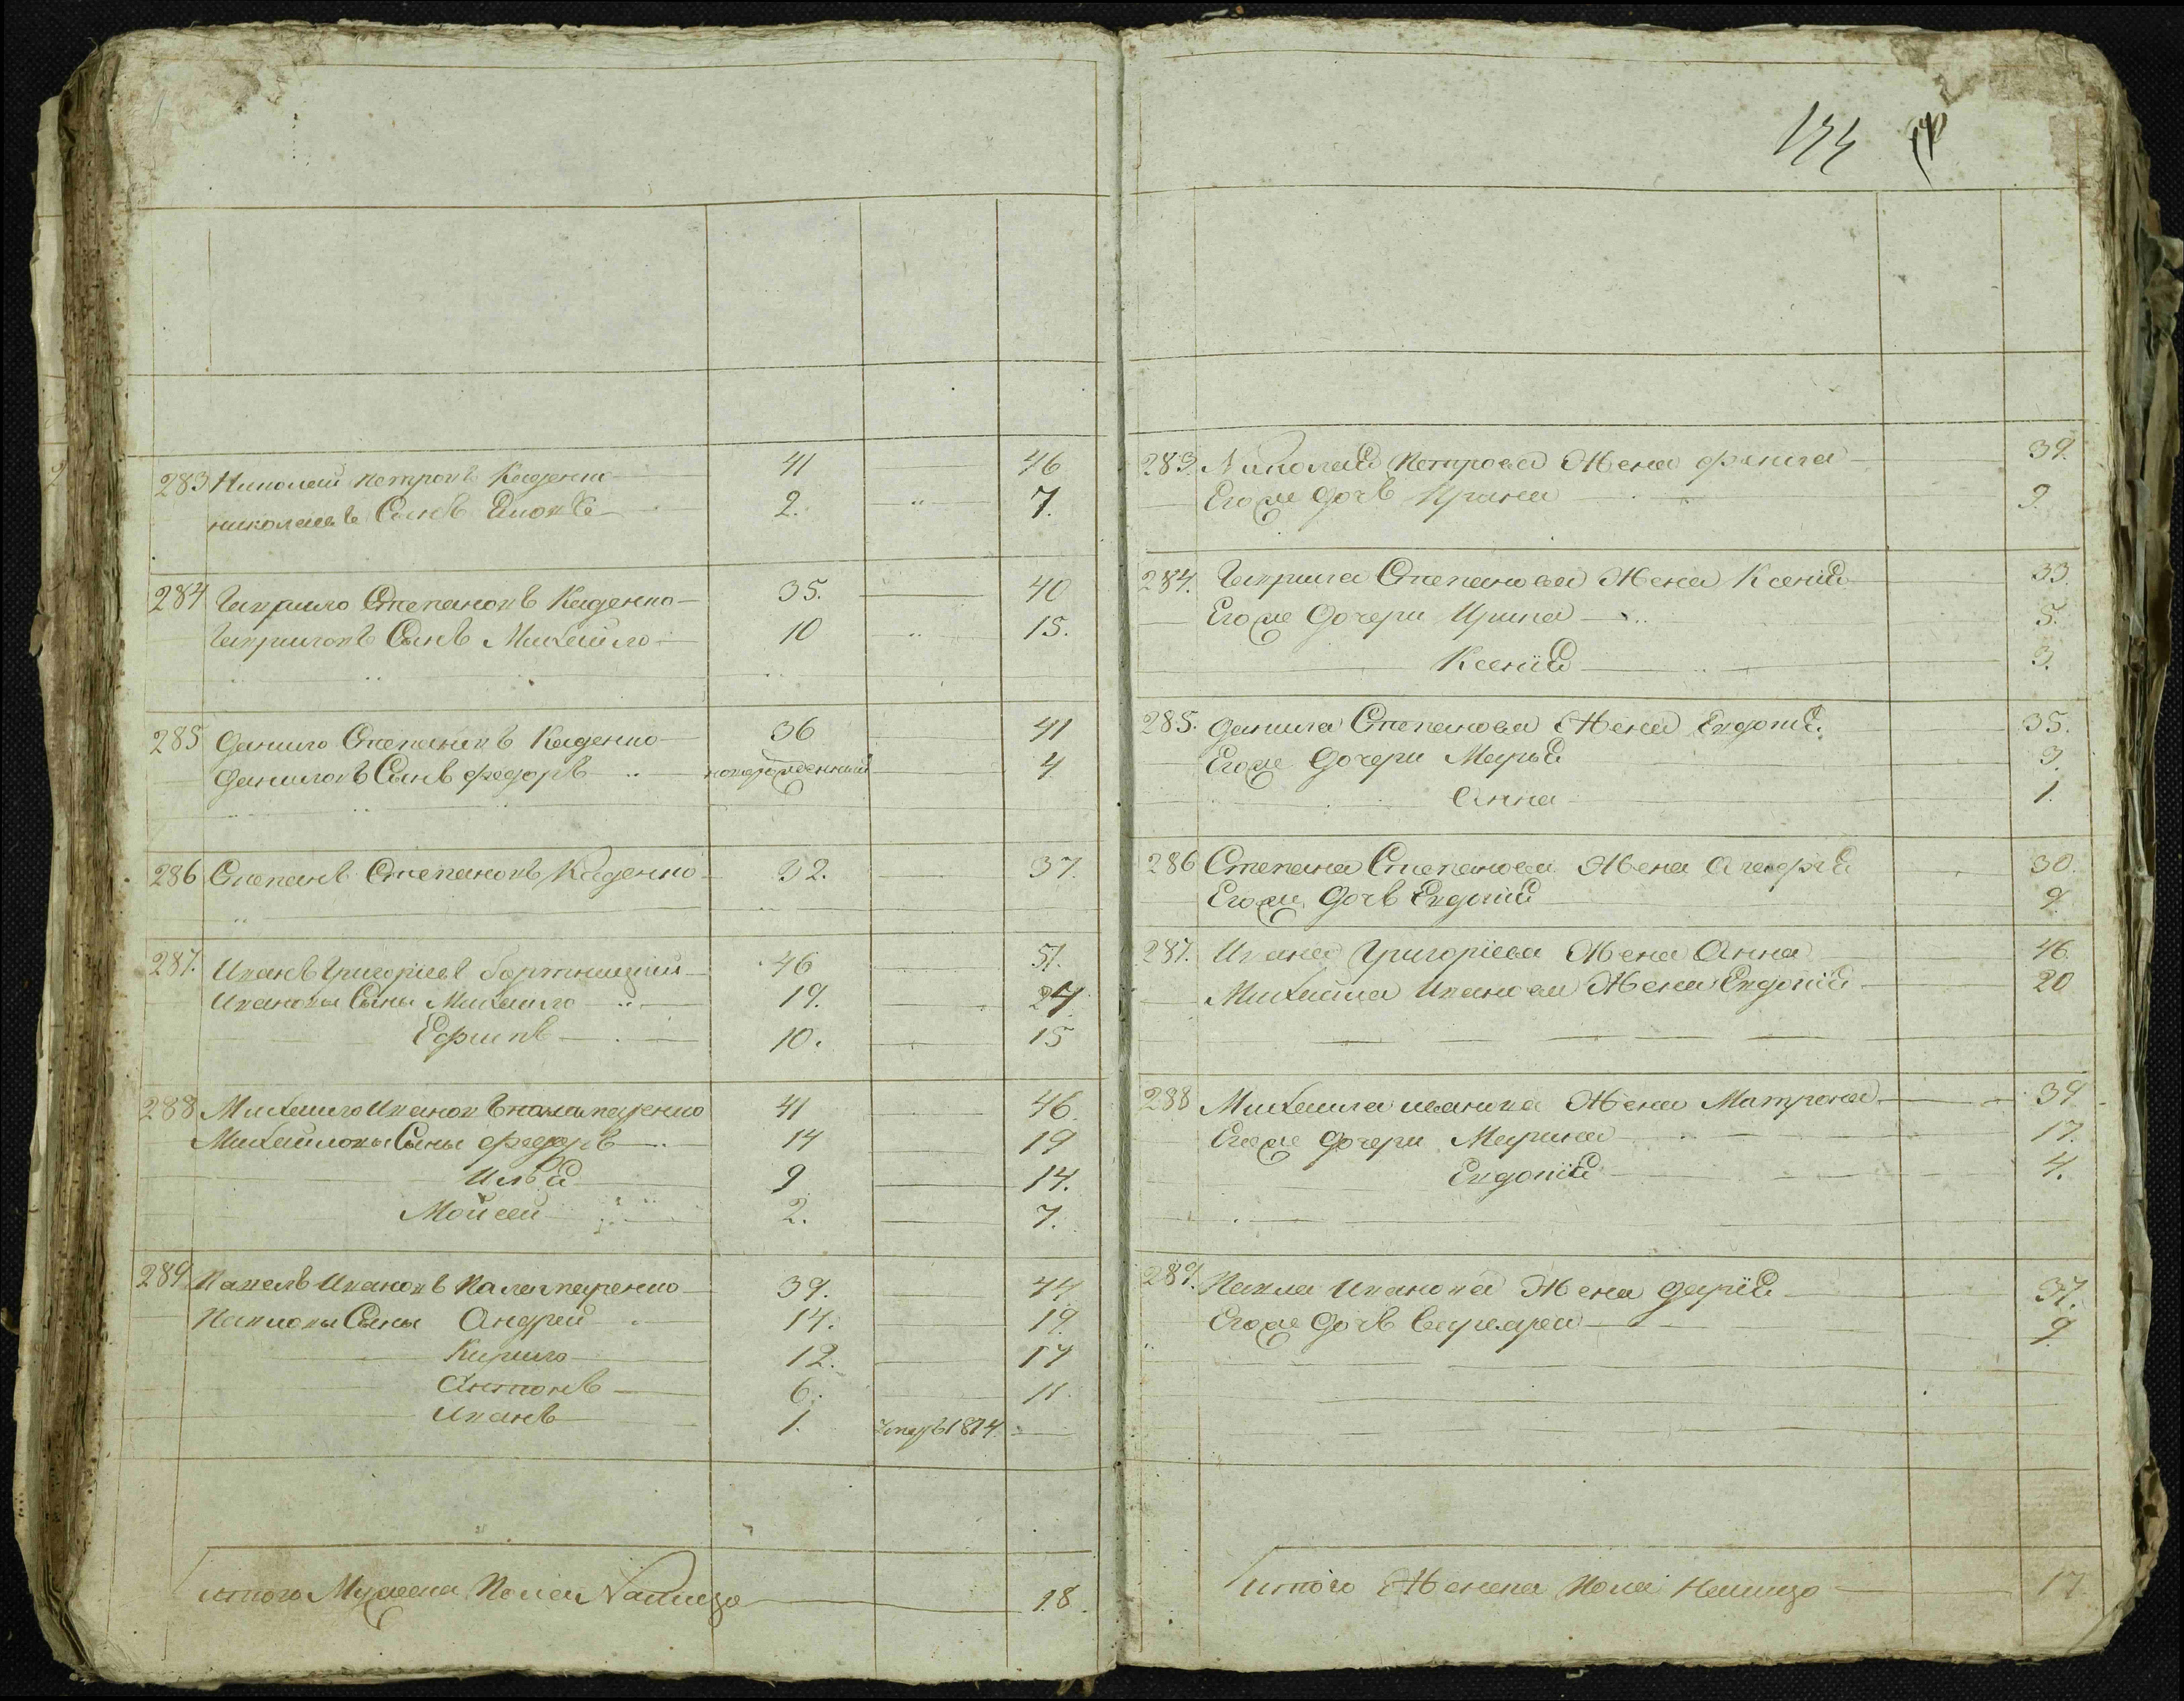 283 Николай Петровъ Каденко 41 46
николаевъ Сынъ 2. 7.
284 Гаврило Степановъ Каденко 35. 40
Гавриловъ Сынъ Михайло 10 15.
285 Данило Степановъ Каденко 36 41
Даниловъ Сынъ федоръ новорожденный 4
286 Степанъ Степановъ Каденко 32. 37.
287. Иванъ Григорьевъ 46 51.
Ивановы Сыны Михайло 19. 24
Ефимъ 10. 15
288 Михайло Ивановъ Паламаренко 41 46.
Михайловы Сыны федоръ 14 19
Илья 9 14.
Мойсей 2. 7.
289 Павелъ Ивановъ Паламаренко 39. 44
Павловы Сыны Андрей 14. 19.
Кирило 12. 17
Антонъ 6. 11.
Иванъ 1. 1814
итого Мужеска Пола Налицо 18.
283. Николая Петрова Жена 39.
Егоже дочь Ирина 9.
284. Гаврила Степанова Жена Ксенія 33.
Егоже дочери Ирина 5.
Ксенія 3.
285. Данила Степанова Жена Евдокія 35.
Егоже дочери Марья 3.
Анна 1.
286 Степана Степанова Жена Агафія 30.
Егоже дочь Евдокія 9.
287. Ивана Григоріева Жена Анна 46.
Михайла Иванова Жена Евдокія 20
288 Михайла иванова Жена Матрона 39
Егоже дочери Марина 17.
Евдокія 4.
289. Павла Иванова Жена Дарія 37.
Егоже дочь Варвара 9.
итого Женска Пола Налицо 17